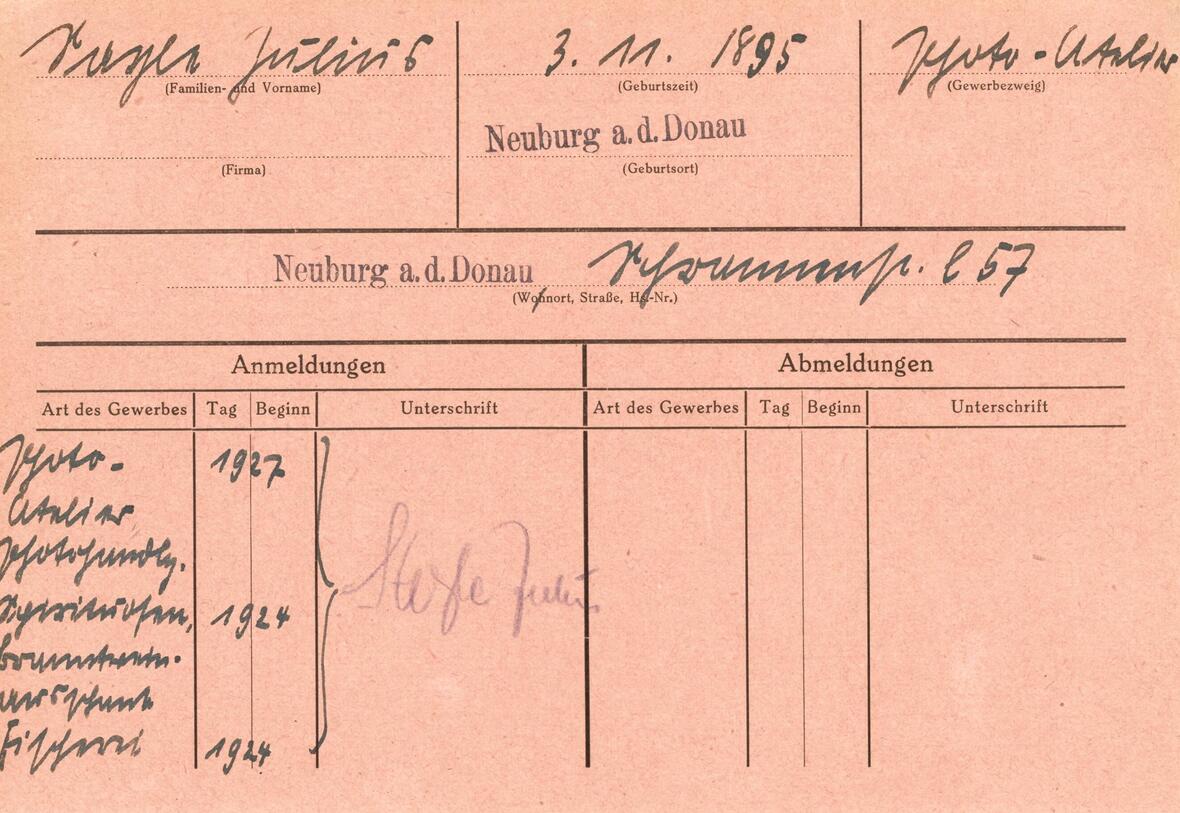 Sayle Julius 3. 11. 1895 Photo-Atelier
(Familien- und Vorname) (Geburtszeit) (Gewerbezweig)
Neuburg a.d.Donau
(Firma) (Geburtsort)
Neuburg a.d.Donau Schrannenstr. C 57
(Wohnort, Straße, Hs.-Nr.)
Anmeldungen Abmeldungen
Art des Gewerbes Tag Beginn Unterschrift Art des Gewerbes Tag Beginn Unterschrift
Photo- 1927
Atelier
Photohandlg.
Julius
Spirituosen, 1924
Branntwein-
ausschank
Fischerei 1924